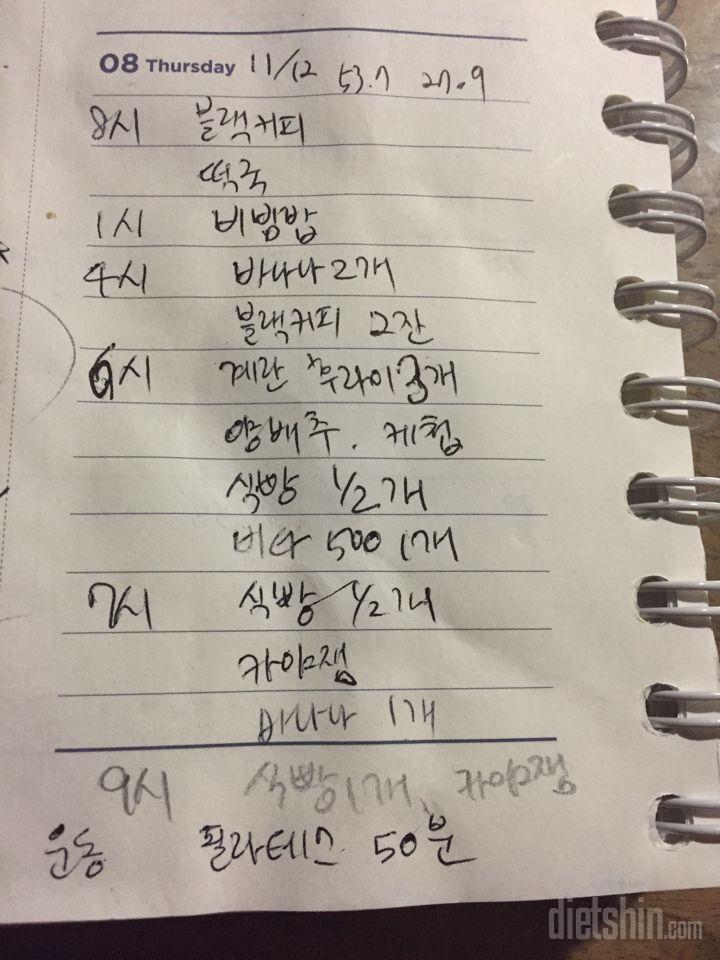 08 Thursday 11/12 53.7 27.9
8시 블랙커피
떡국
1시 비빔밥
4시 바나나 2개
블랙커피 2잔
6시 계란 후라이 3개
양배추. 케첩
식빵 1/2개
비타 500 1개
7시 식빵 1/2개
카야잼
바나나 1개
9시 식빵 1개, 카야잼
운동 필라테스 50분
dietshin.com